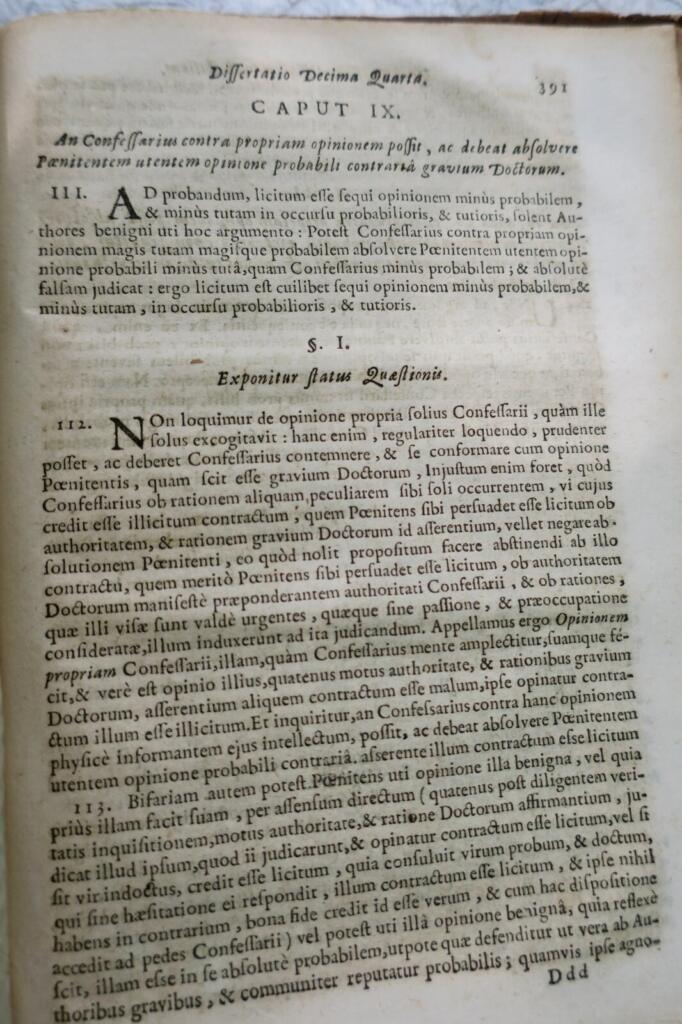 Dissertatio Decima Quarta.
391
CAPUT IX.
An Confessarius contra propriam opinionem possit, ac debeat absolvere
Pœnitentem utentem opinione probabili contrariâ gravium Doctorum.
111. AD probandum, licitum esse sequi opinionem minùs probabilem,
& minùs tutam in occursu probabilioris, & tutioris, solent Au-
thores benigni uti hoc argumento: Potest Confessarius contra propriam opi-
nionem magis tutam magisque probabilem absolvere Pœnitentem utentem opi-
nione probabili minùs tutâ, quam Confessarius minùs probabilem; & absolutè
falsam judicat: ergo licitum est cuilibet sequi opinionem minùs probabilem, &
minùs tutam, in occursu probabilioris, & tutioris.
§. I.
Exponitur status Quæstionis.
112. NOn loquimur de opinione propria solius Confessarii, quàm ille
solus excogitavit: hanc enim, regulariter loquendo, prudenter
posset, ac deberet Confessarius contemnere, & se conformare cum opinione
Pœnitentis, quam scit esse gravium Doctorum, Injustum enim foret, quòd
Confessarius ob rationem aliquam peculiarem sibi soli occurrentem, vi cujus
credit esse illicitum contractum, quem Pœnitens sibi persuadet esse licitum ob
authoritatem, & rationem gravium Doctorum id asserentium, vellet negare ab-
solutionem Pœnitenti, eo quòd nolit propositum facere abstinendi ab illo
contractu, quem meritò Pœnitens sibi persuadet esse licitum, ob authoritatem
Doctorum manifestè præponderantem authoritati Confessarii, & ob rationes,
quæ illi visæ sunt valdè urgentes, quæque sine passione, & præoccupatione
consideratæ, illum induxerunt ad ita judicandum. Appellamus ergo Opinionem
propriam Confessarii, illam, quàm Confessarius mente amplectitur, suamque fé-
cit, & verè est opinio illius, quatenus motus authoritate, & rationibus gravium
Doctorum, asserentium aliquem contractum esse malum, ipse opinatur contra-
ctum illum esse illicitum. Et inquiritur, an Confessarius contra hanc opinionem
physicè informantem ejus intellectum, possit, ac debeat absolvere Pœnitentem
utentem opinione probabili contrariâ. asserente illum contractum esse licitum
113. Bifariam autem potest Pœnitens uti opinione illa benigna, vel quia
priùs illam facit suam, per assensum directum (quatenus post diligentem veri-
tatis inquisitionem, motus authoritate, & ratione Doctorum affirmantium, ju-
dicat illud ipsum, quod ii judicarunt, & opinatur contractum esse licitum, vel si
sit vir indoctus, credit esse licitum, quia consuluit virum probum, & doctum,
qui sine hæsitatione ei respondit, illum contractum esse licitum, & ipse nihil
habens in contrarium, bona fide credit id esse verum, & cum hac dispositione
accedit ad pedes Confessarii) vel potest uti illâ opinione benignâ, quia reflexè
scit, illam esse in se absolutè probabilem, utpote quæ defenditur ut vera ab Au-
thoribus gravibus, & communiter reputatur probabilis; quamvis ipse agno-
Ddd